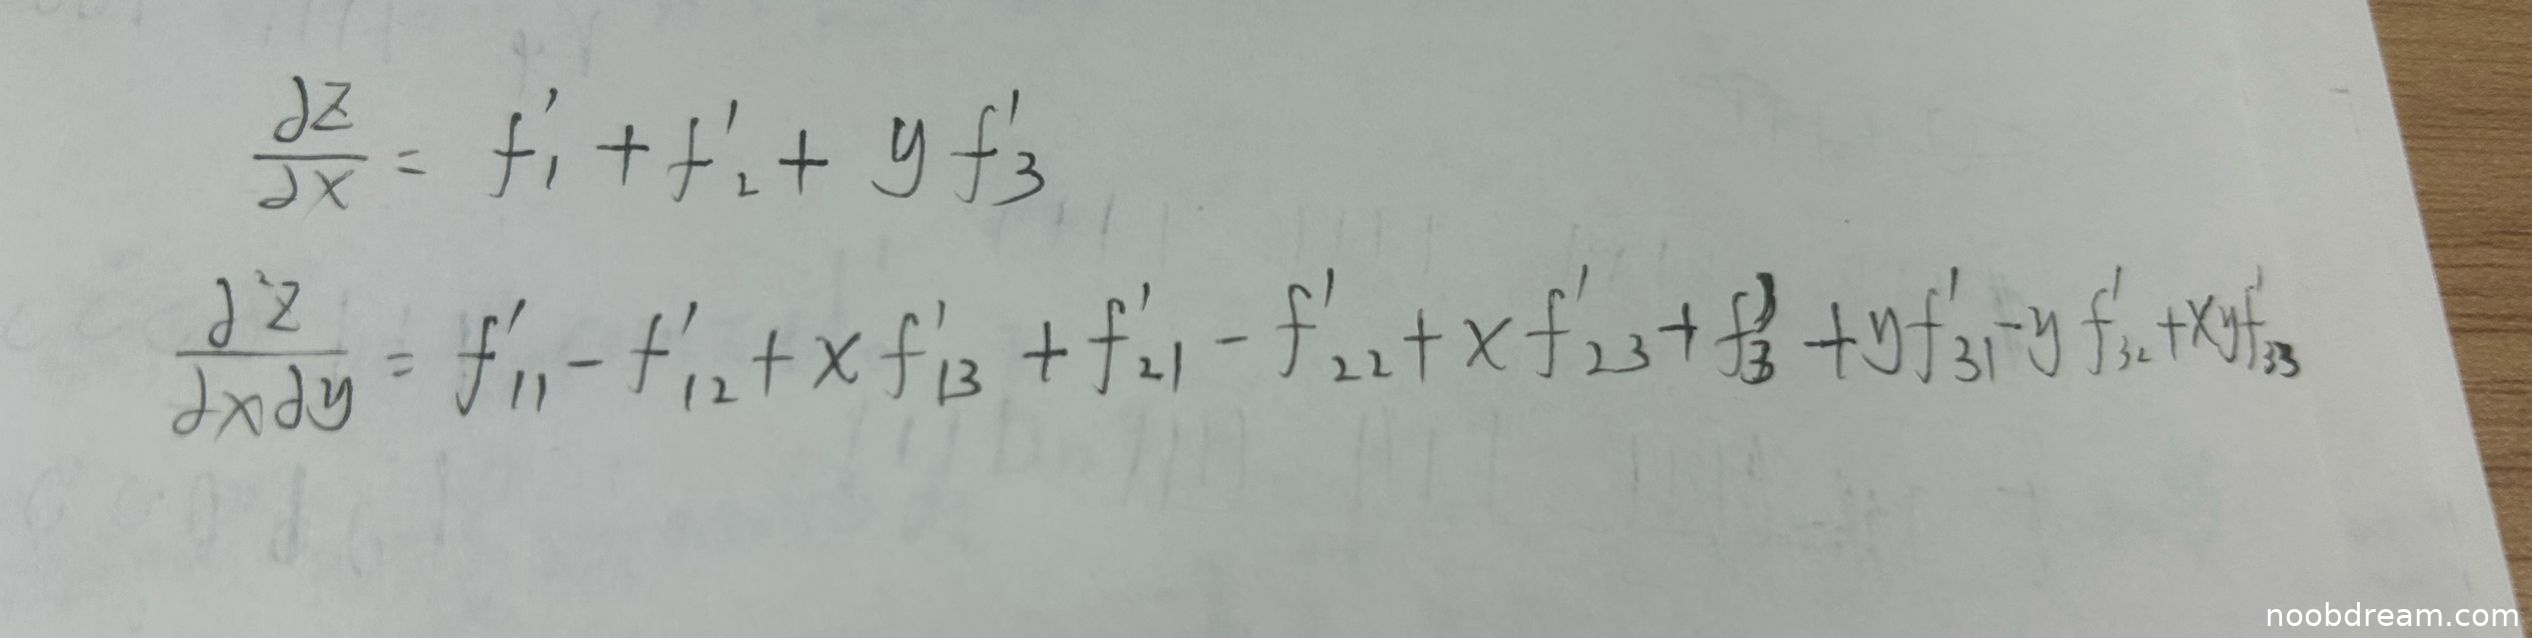 ∂z/∂x = f'₁ + f'₂ + y f'₃
∂²z/∂x∂y = f'₁₁ - f'₁₂ + x f'₁₃ + f'₂₁ - f'₂₂ + x f'₂₃ + f'₃ + y f'₃₁ - y f'₃₂ + xy f'₃₃
noobdream.com